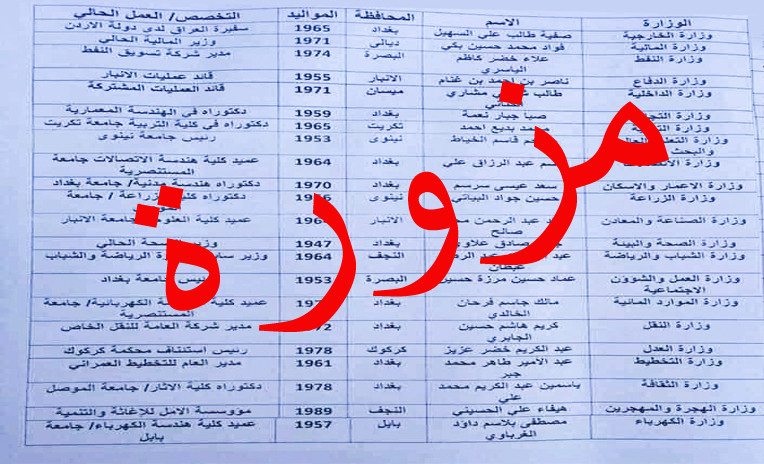 الوزارة الاسم المحافظة المواليد التخصص/ العمل الحالي
وزارة الخارجية صفية طالب علي السهيل بغداد 1965 سفيرة العراق لدى دولة الاردن
وزارة المالية فواد محمد حسين بكي ديالى 1971 وزير المالية الحالي
وزارة النفط علاء خضر كاظم الياسري البصرة 1974 مدير شركة تسويق النفط
وزارة الدفاع ناصر بن احمد بن غنام الانبار 1955 قائد عمليات الانبار
وزارة الداخلية طالب مشاري ميسان 1971 قائد العمليات المشتركة
وزارة صبا جبار نعمة بغداد 1959 دكتوراه في الهندسة المعمارية
وزارة محمد بديع احمد تكريت 1965 دكتوراه في كلية التربية جامعة تكريت
وزارة والبحث قاسم الخياط نينوى 1953 رئيس جامعة نينوى
وزارة عبد الرزاق علي بغداد 1964 عميد كلية هندسة الاتصالات جامعة المستنصرية
وزارة الاعمار والاسكان سعد عيسى سرسم بغداد 1970 دكتوراه هندسة مدنية/ جامعة بغداد
وزارة الزراعة حسين جواد البياتي نينوى دكتوراه / جامعة
وزارة الصناعة والمعادن عبد الرحمن صالح الانبار عميد كلية جامعة الانبار
وزارة الصحة والبيئة صادق علاوي بغداد 1947 وزير الحالي
وزارة الشباب والرياضة عبد عبطان النجف 1964 وزير الرياضة والشباب
وزارة العمل والشؤون الاجتماعية عماد حسين مرزة حسين البصرة 1953 رئيس جامعة بغداد
وزارة الموارد المائية مالك جاسم فرحان الخالدي بغداد عميد كلية الكهربائية/ جامعة المستنصرية
وزارة النقل كريم هاشم حسين الجابري بغداد مدير شركة العامة للنقل الخاص
وزارة العدل عبد الكريم خضر عزيز كركوك 1978 رئيس استئناف محكمة كركوك
وزارة التخطيط عبد الامير طاهر محمد جبر بغداد 1961 مدير العام للتخطيط العمراني
وزارة الثقافة ياسمين عبد الكريم محمد علي بغداد 1978 دكتوراه كلية الاثار/ جامعة الموصل
وزارة الهجرة والمهجرين هيفاء علي الحسيني النجف 1989 مؤوسسة الامل للإغاثة والتنمية
وزارة الكهرباء مصطفى بلاسم داود الغرباوي بابل 1957 عميد كلية هندسة الكهرباء/ جامعة بابل
مزورة